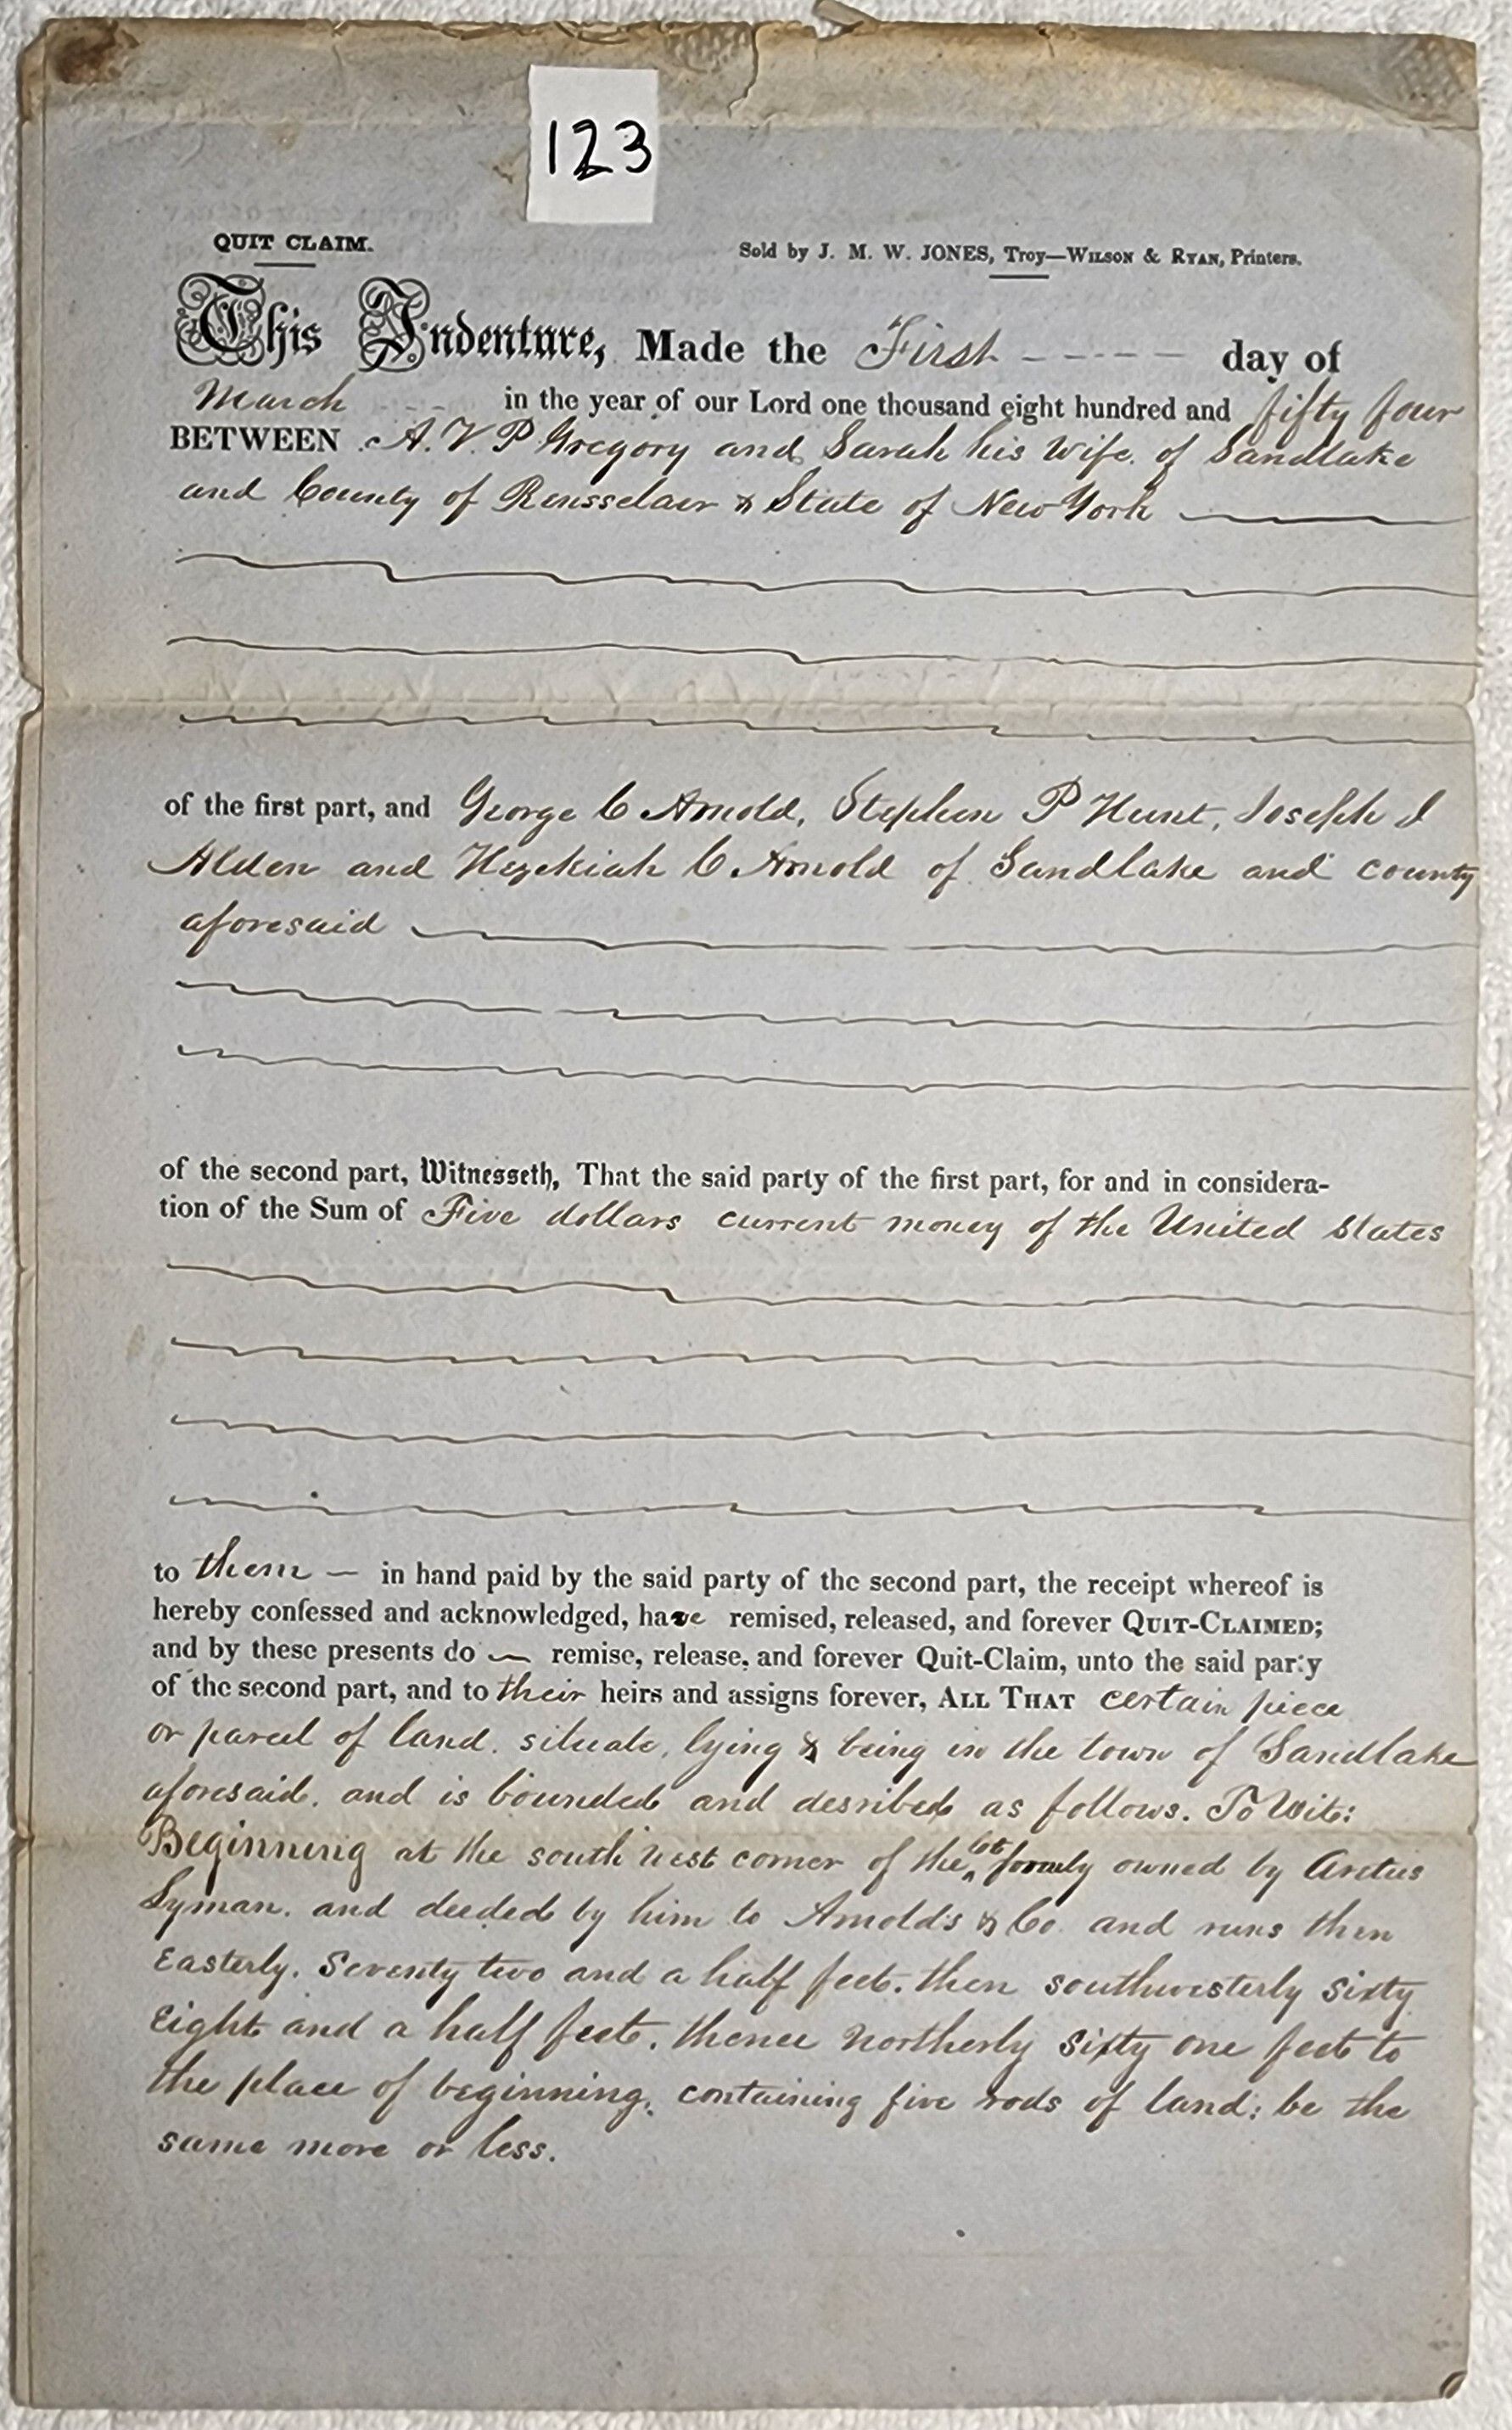 123
QUIT CLAIM.
Sold by J. M. W. JONES, Troy—WILSON & RYAN, Printers.
This Indenture, Made the First day of
March in the year of our Lord one thousand eight hundred and fifty four
BETWEEN A. V. P Gregory and Sarah his Wife. of Sandlake
and County of Rensselaer & State of New York
of the first part, and George C Arnold, Stephen P Hunt, Joseph J
Alden and Hezekiah C Arnold of Sandlake and county
aforesaid
of the second part, Witnesseth, That the said party of the first part, for and in considera-
tion of the Sum of Five dollars current money of the United States
to them — in hand paid by the said party of the second part, the receipt whereof is
hereby confessed and acknowledged, have remised, released, and forever QUIT-CLAIMED;
and by these presents do — remise, release, and forever Quit-Claim, unto the said party
of the second part, and to their heirs and assigns forever, ALL THAT certain piece
or parcel of land. situate, lying & being in the town of Sandlake
aforesaid. and is bounded and desribed as follows. To Wit:
Beginning at the south west corner of the lot formely owned by
Lyman. and deeded by him to Arnold's & Co. and runs then
Easterly. Seventy two and a half feet. then southwesterly sixty
Eight and a half feet. thence Northerly sixty one feet to
the place of beginning. containing five rods of land: be the
same more or less.